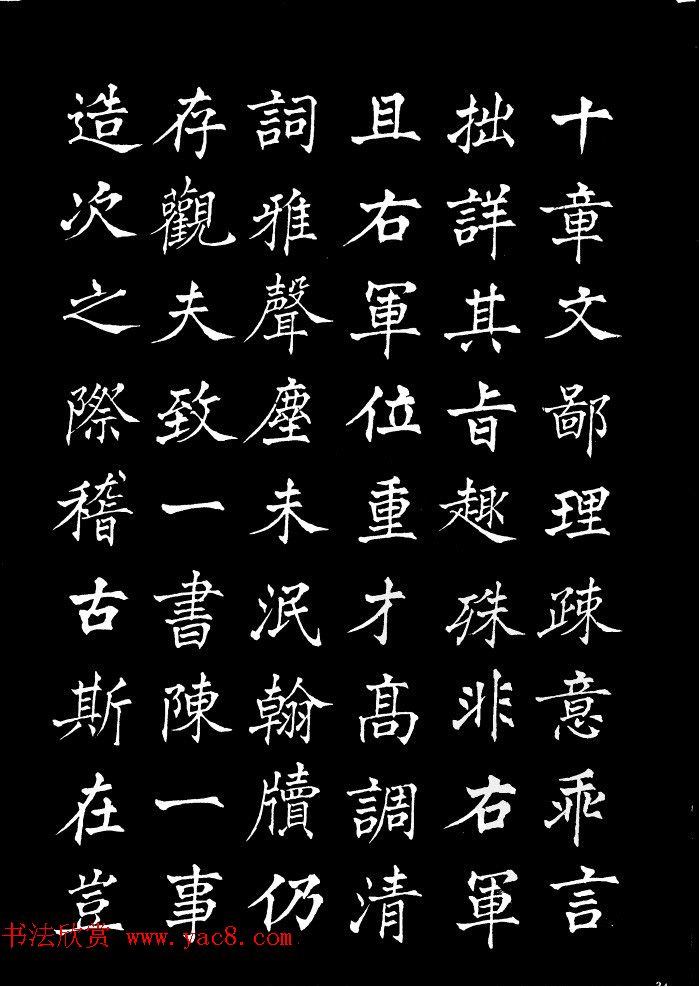 十章文鄙理疎意乖言
拙詳其旨趣殊非右軍
且右軍位重才高調清
詞雅聲塵未泯翰牘仍
存觀夫致一書陳一事
造次之際稽古斯在豈
书法欣赏 www.yac8.com
34